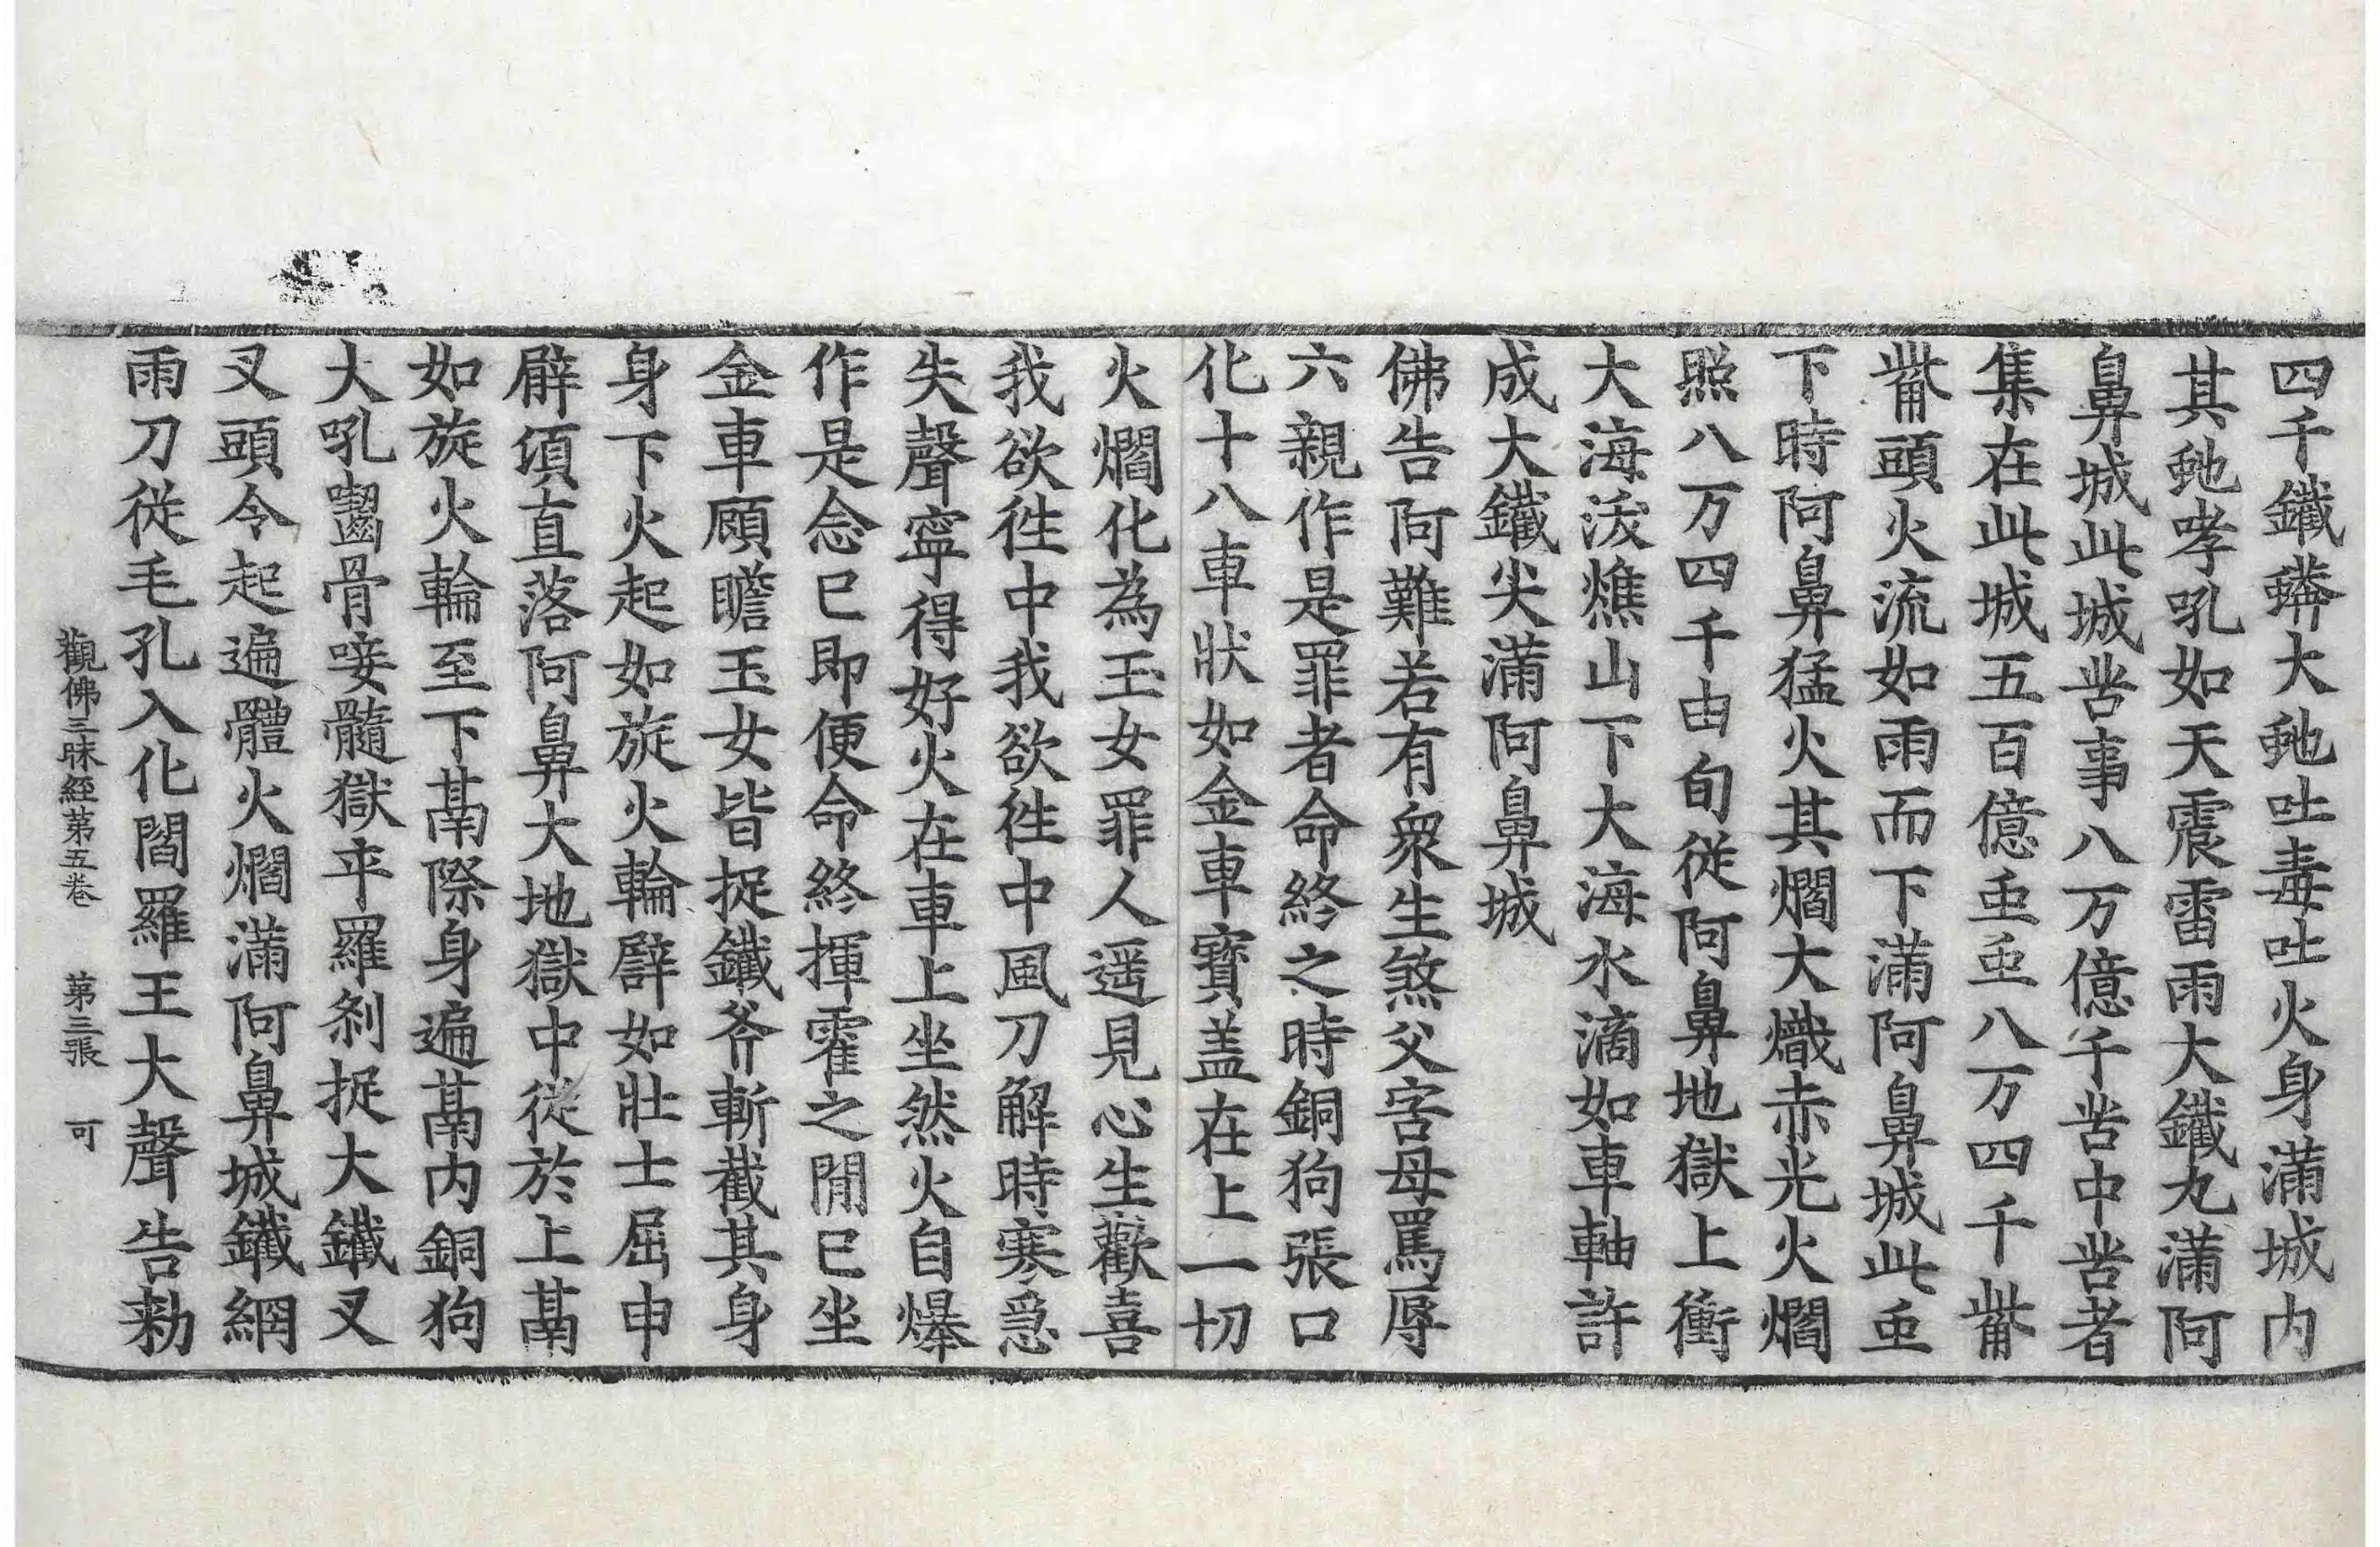 四千鐵蟒大虵吐毒吐火身滿城内
其虵哮吼如天震雷雨大鐵丸滿阿
鼻城此城苦事八万億千苦中苦者
集在此城五百億䖝䖝八万四千㭰
㭰頭火流如雨而下滿阿鼻城此䖝
下時阿鼻猛火其爓大熾赤光火爓
照八万四千由旬從阿鼻地獄上衝
大海沃燋山下大海水滴如車軸許
成大鐵尖滿阿鼻城
佛告阿難若有衆生煞父害母罵辱
六親作是罪者命終之時銅狗張口
化十八車狀如金車寳盖在上一切
火爓化為玉女罪人遥見心生歡喜
我欲徃中我欲徃中風刀解時寒急
失聲寧得好火在車上坐然火自爆
作是念已即便命終揮霍之閒已坐
金車顧瞻玉女皆捉鐵斧斬截其身
身下火起如旋火輪譬如壯士屈申
臂頃直落阿鼻大地獄中從於上鬲
如旋火輪至下鬲際身遍鬲内銅狗
大吼齧骨唼髓獄卒羅刹捉大鐵叉
叉頭令起遍體火爓滿阿鼻城鐵網
雨刀從毛孔入化閻羅王大聲告勑
觀佛三昧經第五卷 第三張 可